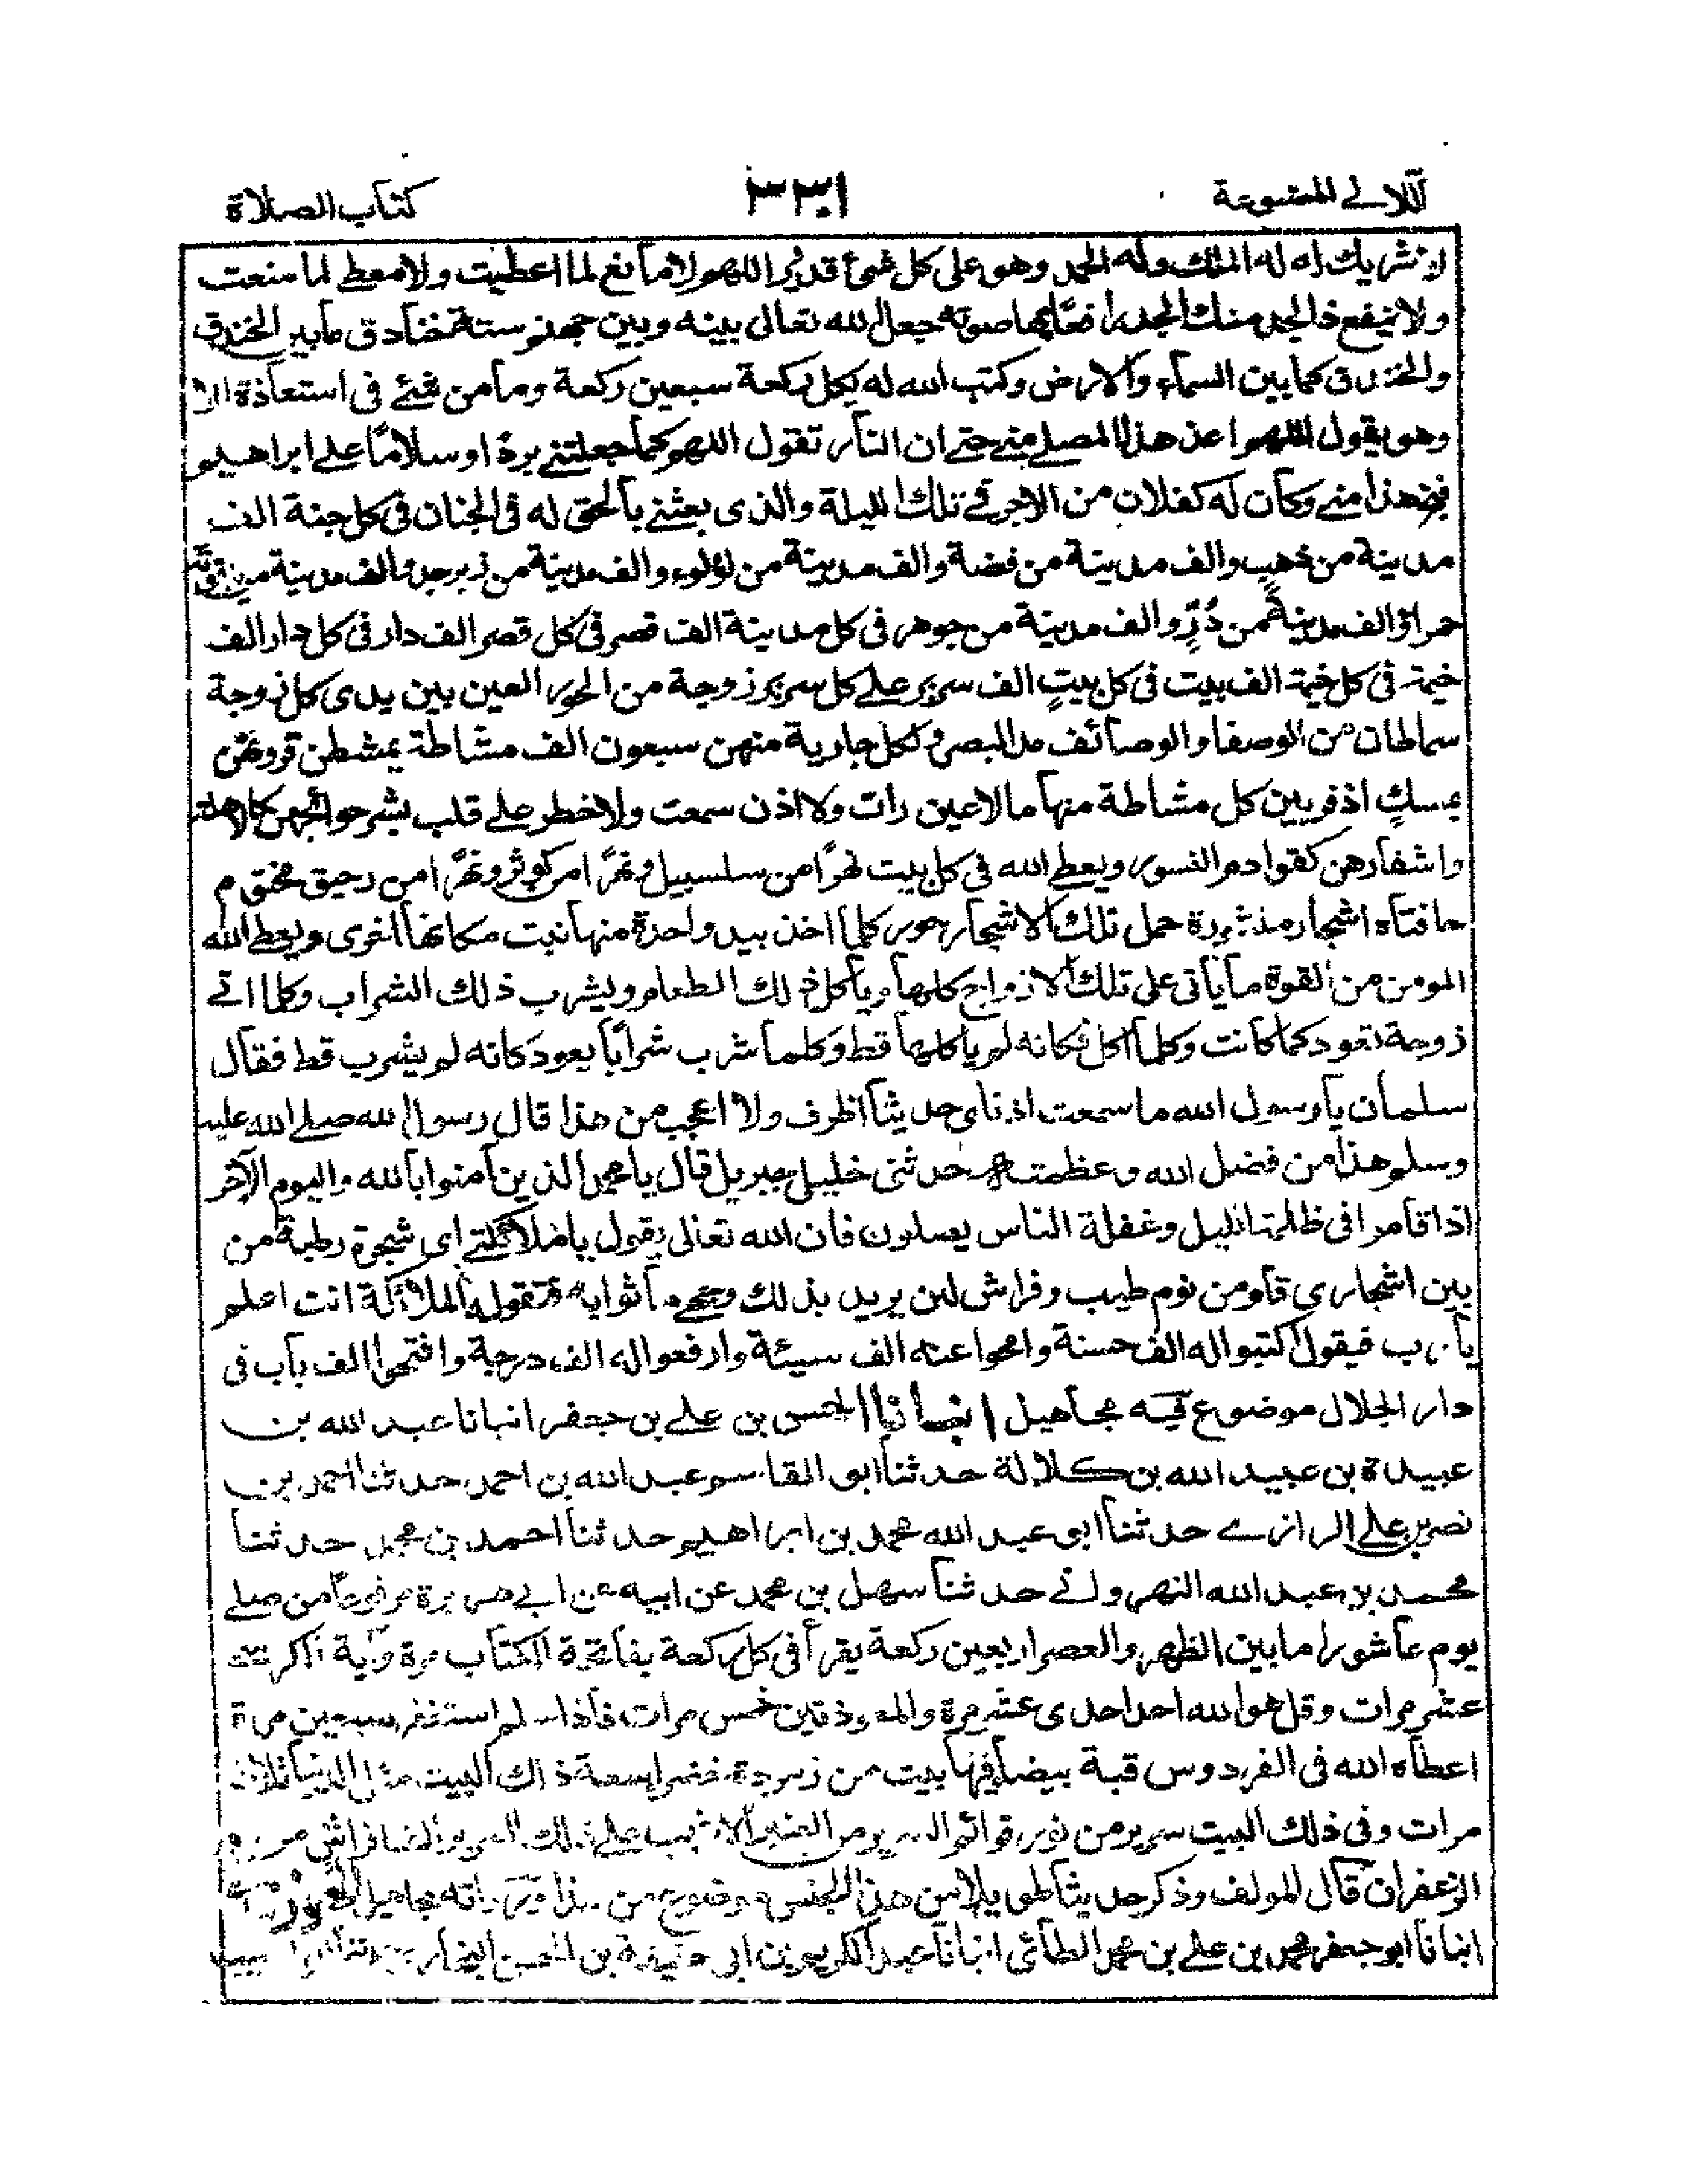 اللآلى المصنوعة
٣٣١
كتاب الصلاة
لا شريك له له الملك وله الحمد وهو على كل شئ قدير اللهم لا مانع لما اعطيت ولا معطى لما منعت
ولا ينفع ذا الجد منك الجد رافعًا بها صوته جعل الله تعالى بينه وبين جهنم ستة خنادق ما بين الخندق
والخندق كما بين السماء والارض وكتب الله له بكل ركعة سبعين ركعة وما من شئے فى استعاذة الا
وهو يقول اللهم اعذ هذا المصلے منے حتے ان النار تقول اللهم كما جعلتنے بردًا وسلامًا علے ابراهيم
فنج هذا منے وكان له كفلان من الاجر فے تلك الليلة والذى بعثنے بالحق له فى الجنان فى كل جنة الف
مدينة من ذهب والف مدينة من فضة والف مدينة من لؤلوء والف مدينة من زبرجد والف مدينة من ياقوتة
حمراؤ الف مدينة من دُرٍّ والف مدينة من جوهر فى كل مدينة الف قصر فى كل قصر الف دار فى كل دار الف
خيمة فى كل خيمة الف بيت فى كل بيتٍ الف سرير علے كل سرير زوجة من الحور العين بين يدى كل زوجة
سماطان من الوصفا والوصائف مد البصر ولكل جارية منهن سبعون الف مشاطة يمشطن قرونهن
بمسكٍ اذفر بين كل مشاطة منها ما لا عين رات ولا اذن سمعت ولا خطر علے قلب بشر حواجبهن كالاهلة
واشفارهن كقوادم النسور ويعطے الله فى كل بيت نهرًا من سلسبيل ونهرًا من كوثر ونهرًا من رحيق مختوم
حافتاه اشجار منثورة حمل تلك الاشجار حور كلما اخذ بيد واحدة منها نبت مكانها اخرى ويعطے الله
المومن من القوة ما يأتى على تلك الازواج كلها ويأكل ذلك الطعام ويشرب ذلك الشراب وكلما اتے
زوجة تعود كما كانت وكلما اكل فكانه لم ياكلها قط وكلما شرب شرابًا يعود كانه لم يشرب قط فقال
سلمان يا رسول الله ما سمعت اذناى حديثا اظرف ولا اعجب من هذا قال رسول الله صلے الله عليه
وسلم هذا من فضل الله وعظمته حدثنى خليل جبريل قال يا محمد الذين آمنوا بالله واليوم الآخر
اذا قامرا فى ظلمة الليل وغفلة الناس يصلون فان الله تعالى يقول يا ملائكتے اى شجرة رطبة من
بين اشجارى قام من نوم طيب وفراش لين يريد بذلك وجهے ما ثوابه فتقول الملائكة انت اعلم
يا رب فيقول اكتبوا له الف حسنة وامحوا عنه الف سيئة وارفعوا له الف درجة وافتحوا الف باب فى
دار الجلال موضوع فيه مجاهيل انبانا الحسن بن علے بن جعفر انبانا عبد الله بن
عبيدة بن عبيد الله بن كلالة حدثنا ابو القاسم عبد الله بن احمد حدثنا احمد بن
نصر بن علے الرازے حدثنا ابو عبد الله محمد بن ابراهيم حدثنا احمد بن محمد حدثنا
محمد بن عبد الله النهروانے حدثنا سهل بن محمد عن ابيه عن ابے هريرة مرفوعا من صلے
يوم عاشورا ما بين الظهر والعصر اربعين ركعة يقرأ فى كل ركعة بفاتحة الكتاب مرة وآية الكرسے
عشر مرات وقل هو الله احد احدى عشر مرة والمعوذتين خمس مرات فاذا سلم استغفر سبعين مرة
اعطاه الله فى الفردوس قبة بيضا فيها بيت من زمردة خضرا سعة ذلك البيت مثل الدنيا ثلاث
مرات وفى ذلك البيت سرير من نور قوائم السرير من العنبر الاشهب علے ذلك السرير الفا فراش من
الزعفران قال المولف وذكر حديثا طويلا من هذا الجنس موضوع من رواته مجاهيل
انبانا ابو جعفر محمد بن علے بن محمد الطائى انبانا عبد الكريم بن ابى حنيفة بن الحسن البخارى